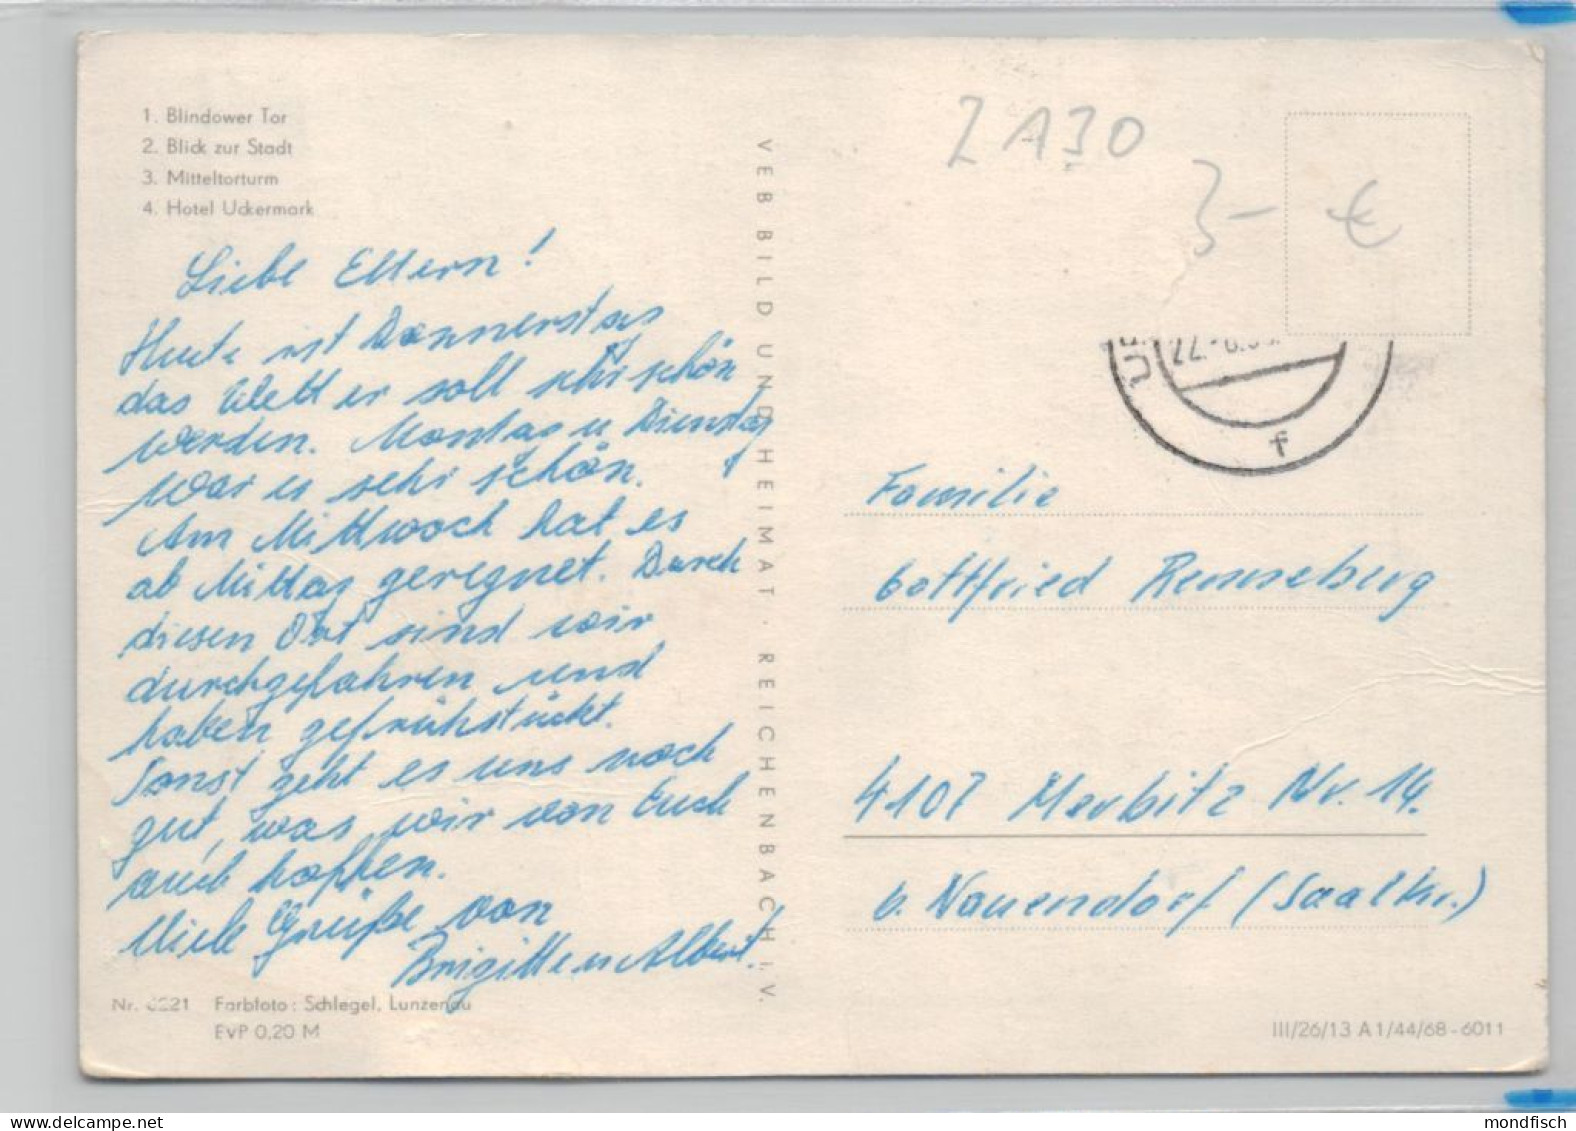 1. Blindower Tor
2. Blick zur Stadt
3. Mitteltorturm
4. Hotel Uckermark
Liebe Eltern!
Heute ist Donnerstag
das Wetter soll sehr schön
werden. Montag u Dienstag
war es sehr schön.
Am Mittwoch hat es
ab Mittag geregnet. Durch
diesen Ort sind wir
durchgefahren und
haben gefrühstückt.
Sonst geht es uns noch
gut, was wir von Euch
auch hoffen.
Viele Grüße von
Brigitte u Albert.
Nr. 6221 Farbfoto: Schlegel, Lunzenau
EVP 0,20 M
VEB BILD UND HEIMAT · REICHENBACH I. V.
Z A30
3-
€
f
Familie
Gottfried
4107 Merbitz Nr. 14.
b. Nauendorf (Saalkr.)
III/26/13 A 1/44/68-6011
mondfisch